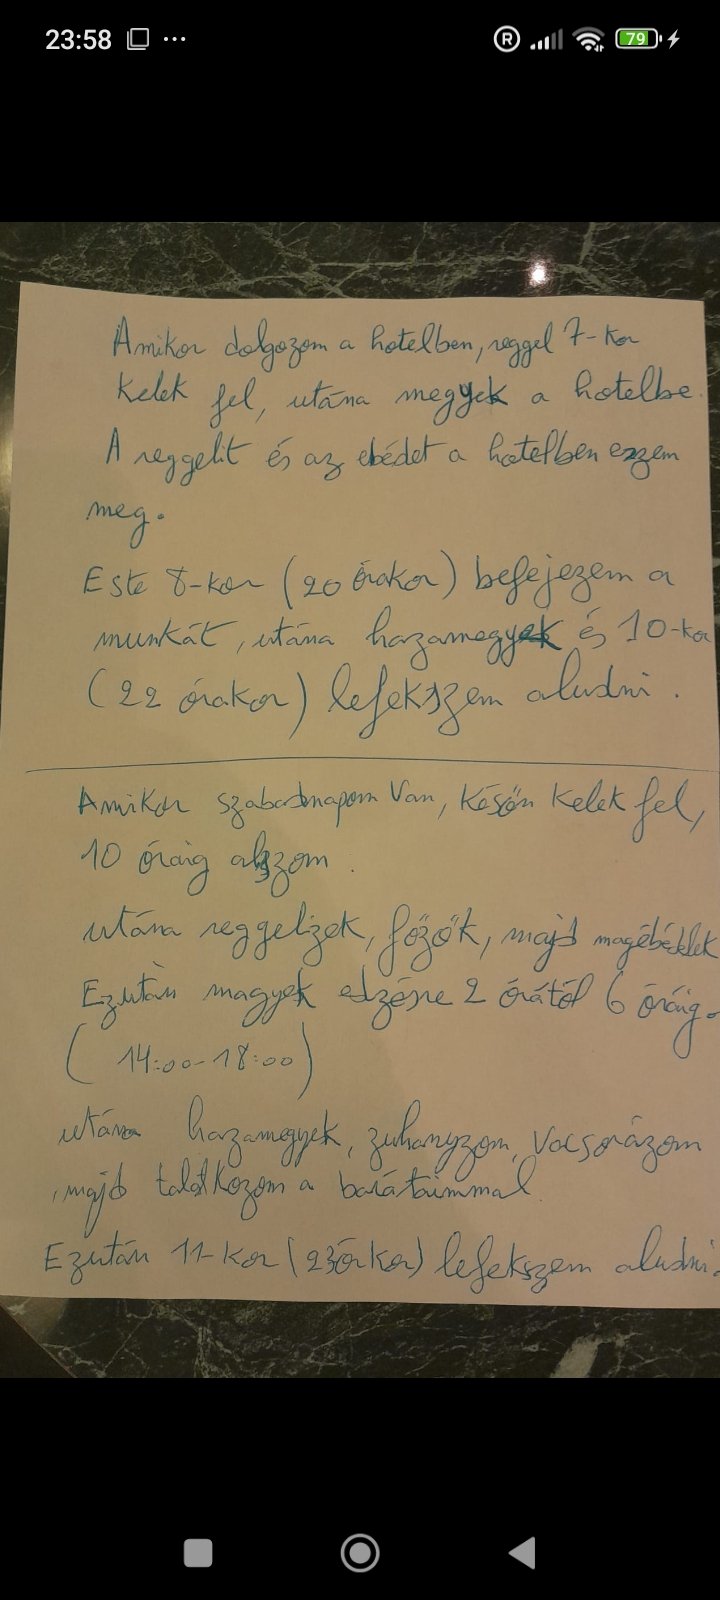 23:58
79
Amikor dolgozom a hotelben, reggel 7-kor
kelek fel, utána megyek a hotelbe.
A reggelit és az ebédet a hotelben eszem
meg.
Este 8-kor (20 órakor) befejezem a
munkát, utána hazamegyek és 10-kor
(22 órakor) lefekszem aludni.
Amikor szabadnapom van, későn kelek fel,
10 óráig alszom.
utána reggelizek, főzök, majd magebédelek
Ezután magyek edzésre 2 órától 6 óráig.
( 14:00-18:00)
utána hazamegyek, zuhanyzom, vacsorázom
, majd találkozom a barátaimmal.
Ezután 11-kor (23órkor) lefekszem aludni.